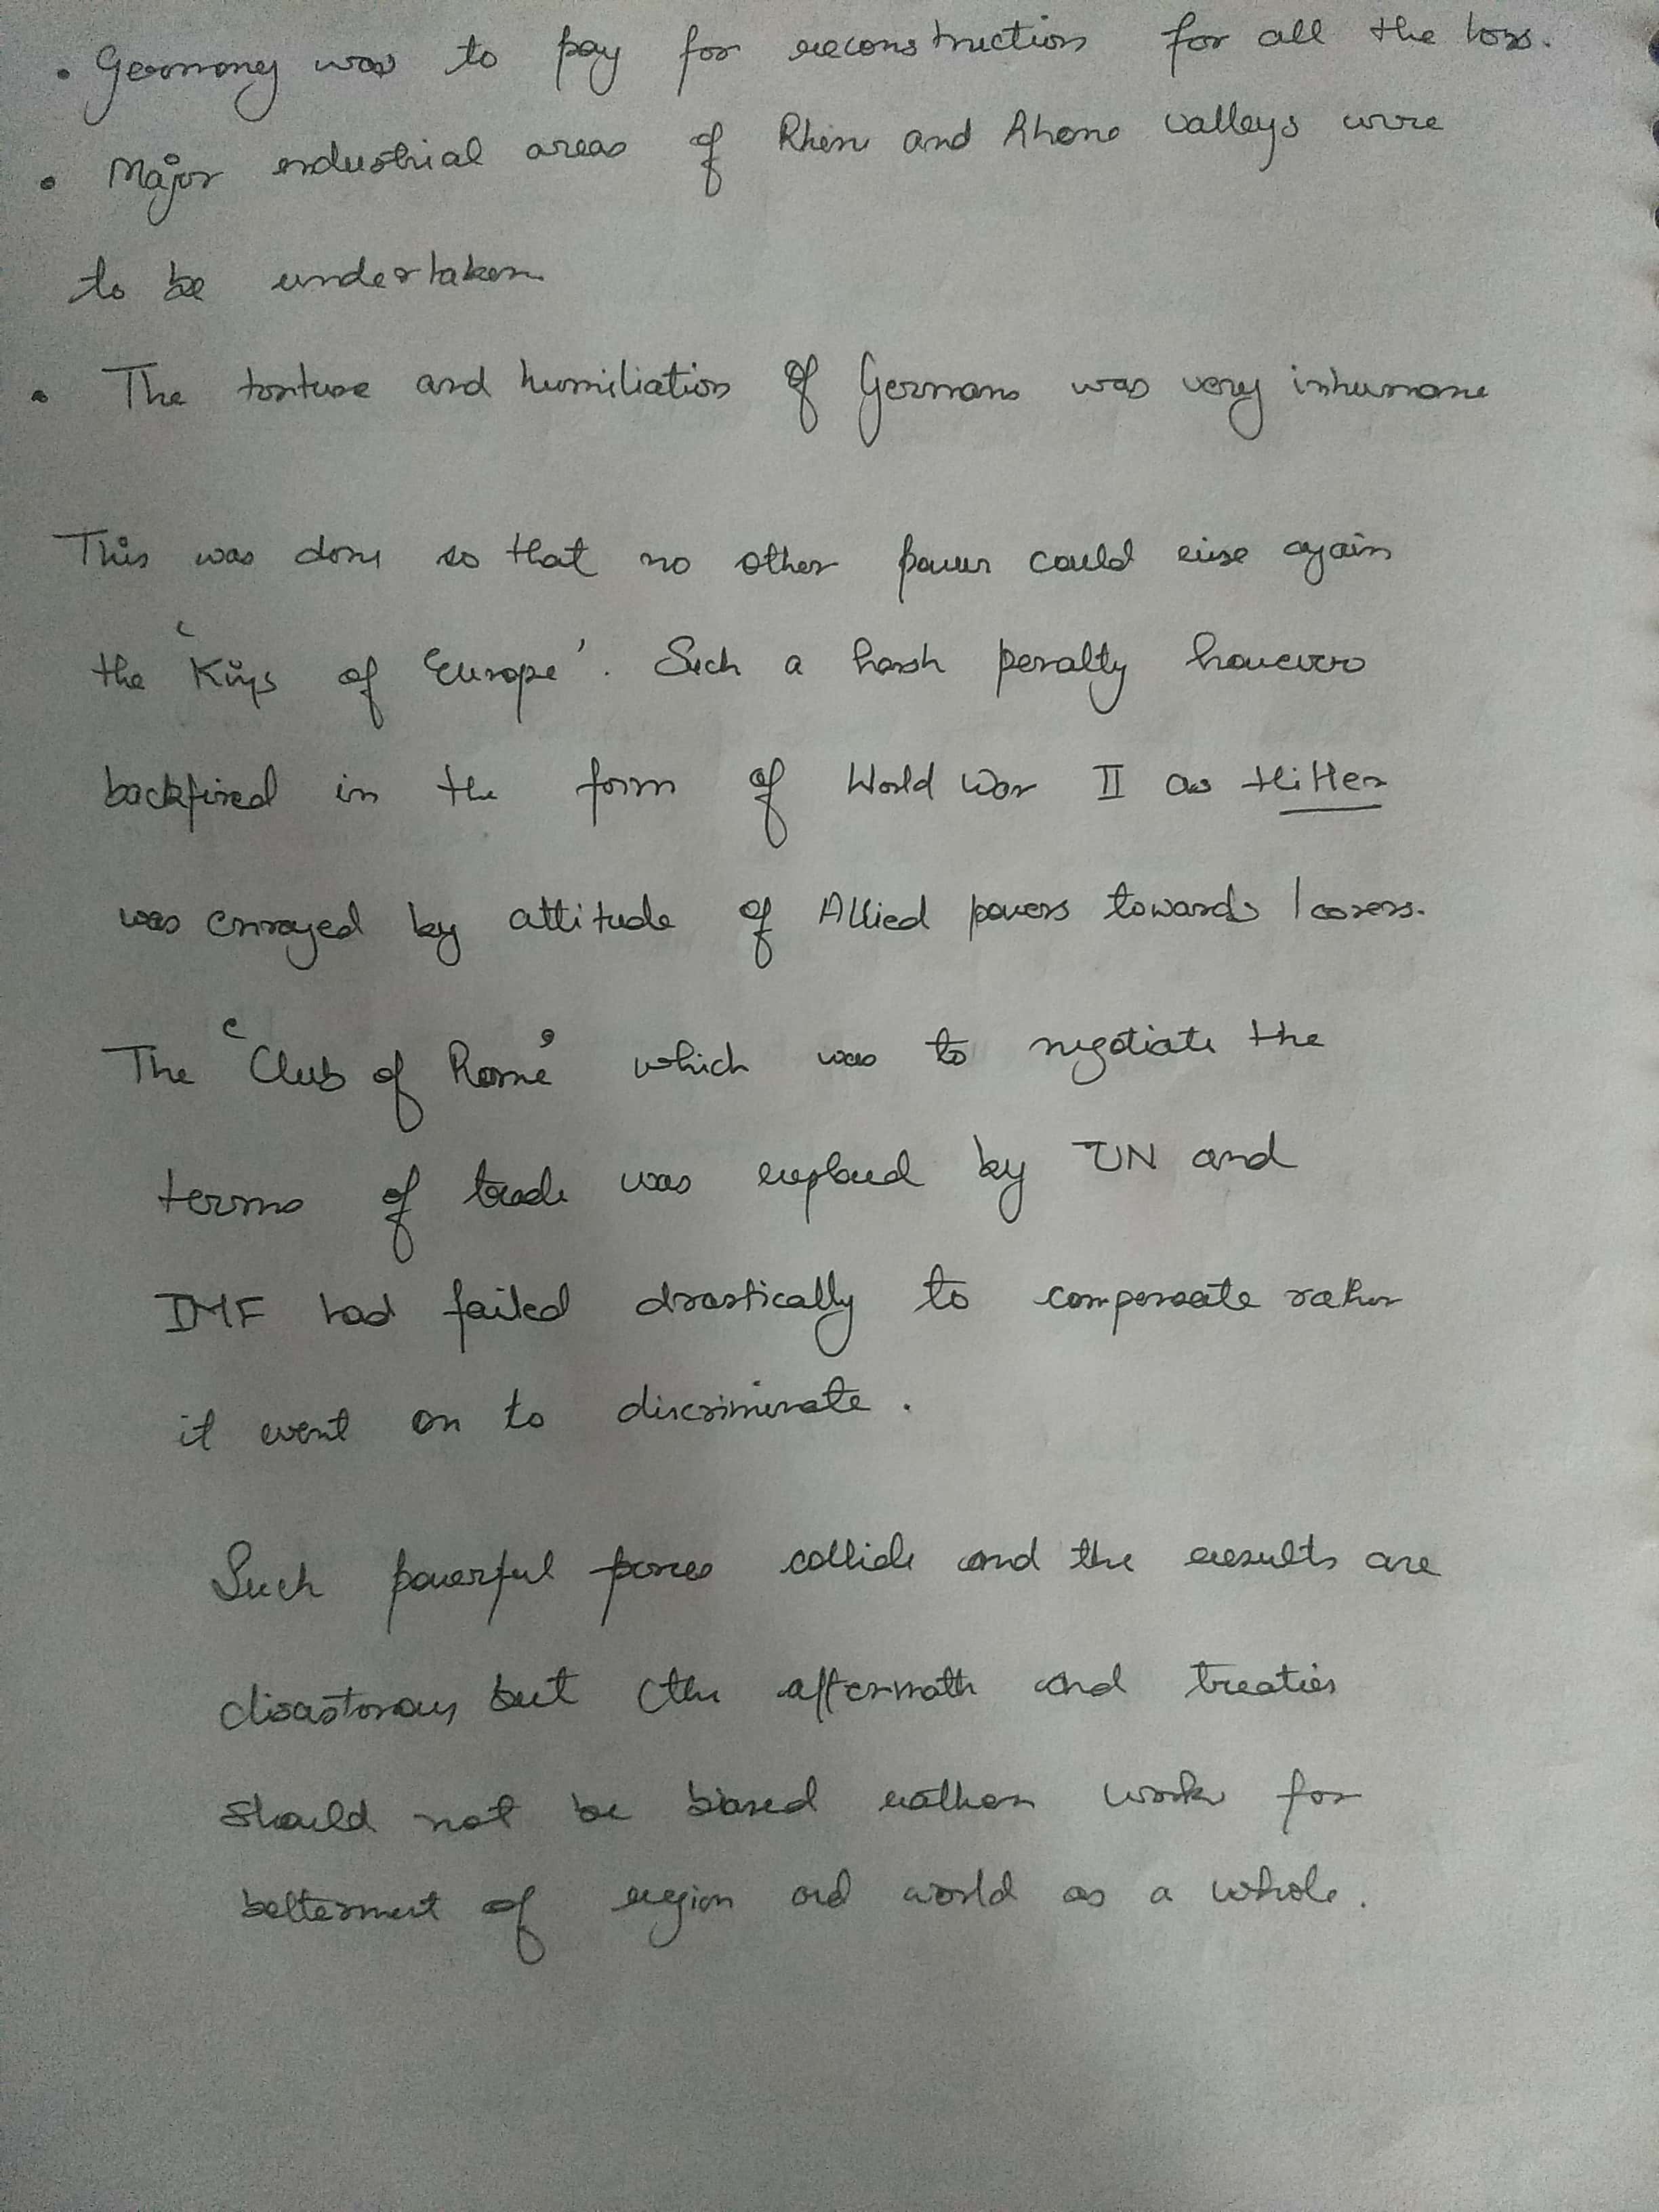 • Germany was to pay for reconstruction for all the loss.
• Major industrial areas of Rhein and Rhone valleys were
to be undertaken
• The torture and humiliation of Germans was very inhumane
This was done so that no other power could rise again
the 'Kings of Europe'. Such a harsh penalty however
backfired in the form of World War II as Hitler
was enraged by attitude of Allied powers towards loosers.
The 'Club of Rome' which was to negotiate the
terms of trade was replaced by UN and
IMF had failed drastically to compensate rather
it went on to discriminate.
Such powerful forces collide and the results are
disastorous but the aftermath and treaties
should not be biased rather work for
betterment of region and world as a whole.